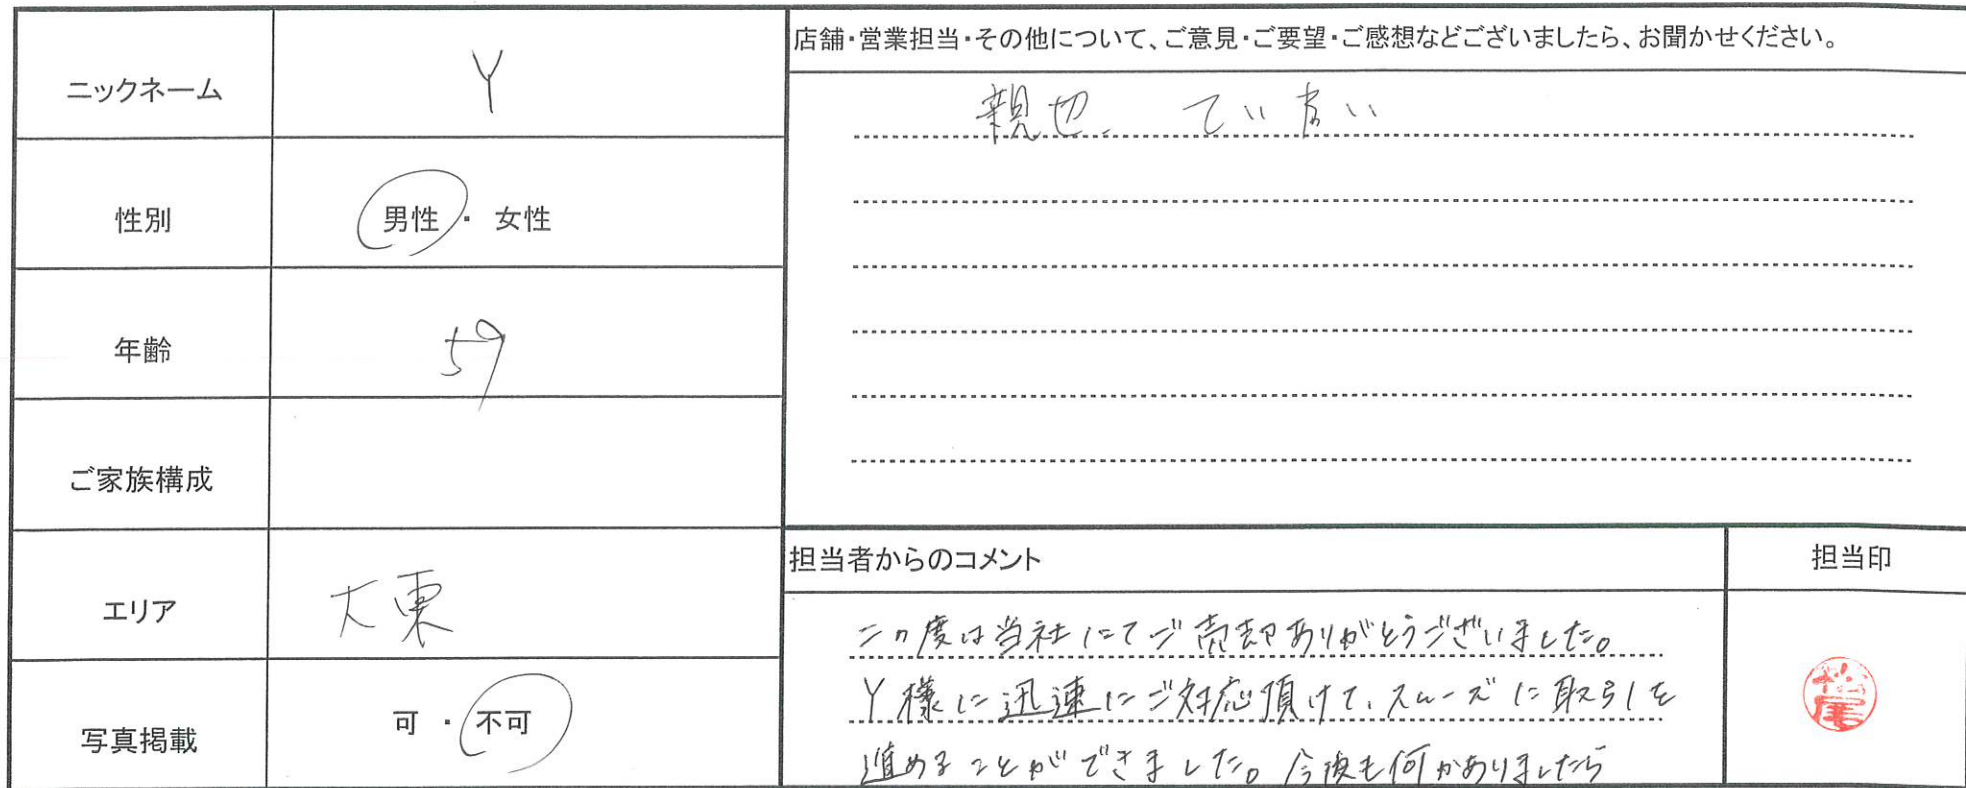 ニックネーム
Y
性別
男性・女性
年齢
59
ご家族構成
エリア
大東
写真掲載
可・不可
店舗・営業担当・その他について、ご意見・ご要望・ご感想などございましたら、お聞かせください。
親切、ていねい
担当者からのコメント
この度は当社にてご売却ありがとうございました。
Y様に迅速にご対応頂けて、スムーズに取引を
進めることができました。今後も何かありましたら
担当印
松尾